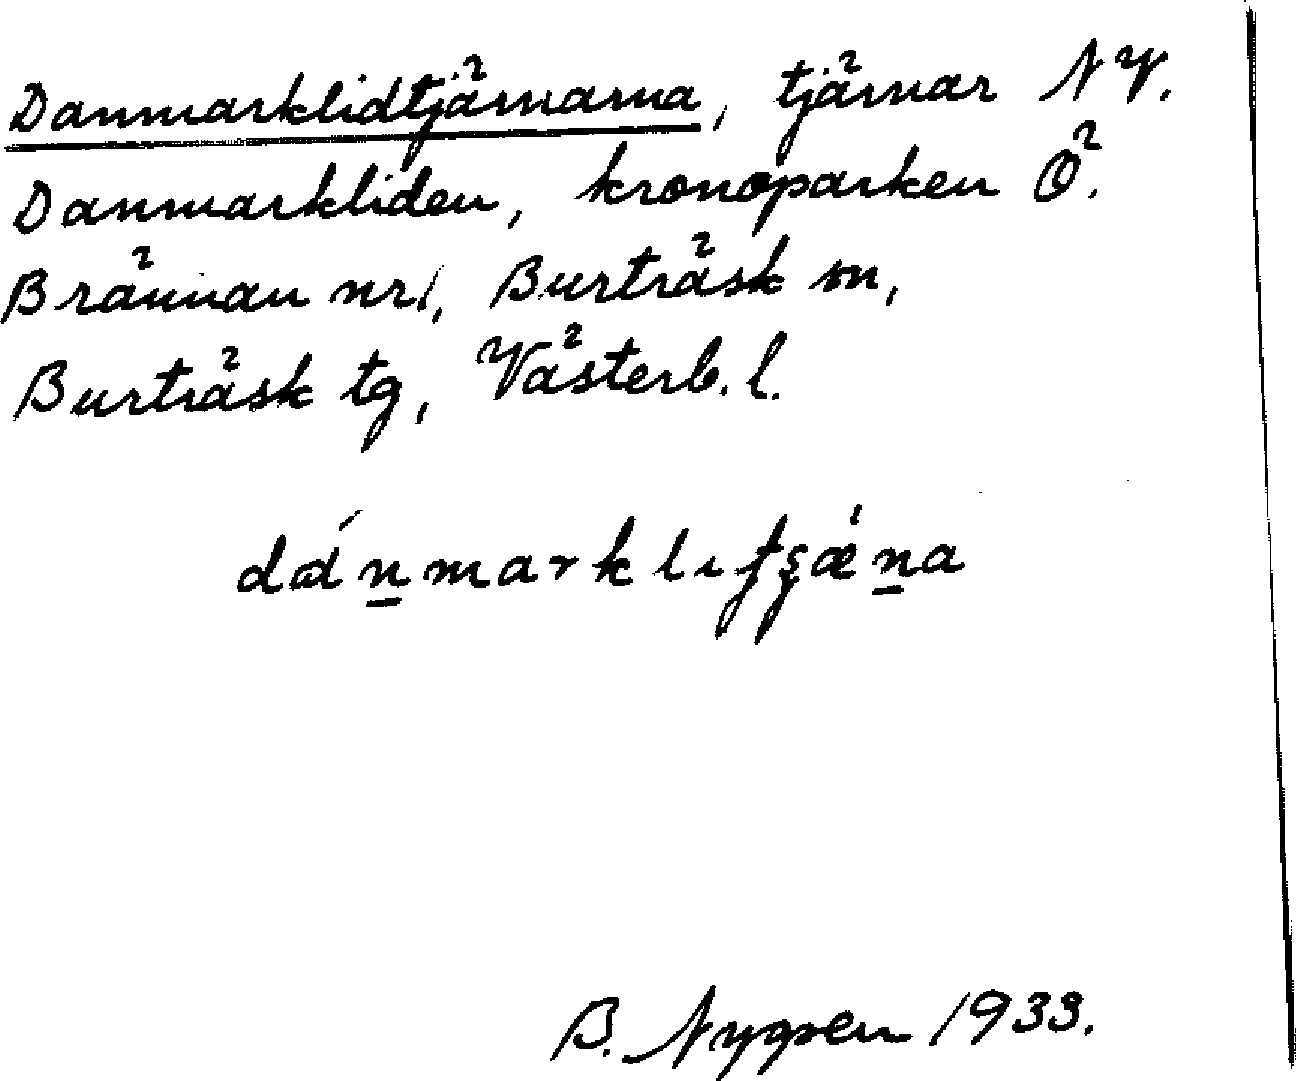 Danmarklidtjärnarna, tjärnar NV.
Danmarkliden, kronoparken Ö.
Brännan nr 1, Burträsk sn,
Burträsk tg, Västerb. l.
dánmarklitʃşǽna
B. Nygren 1933.